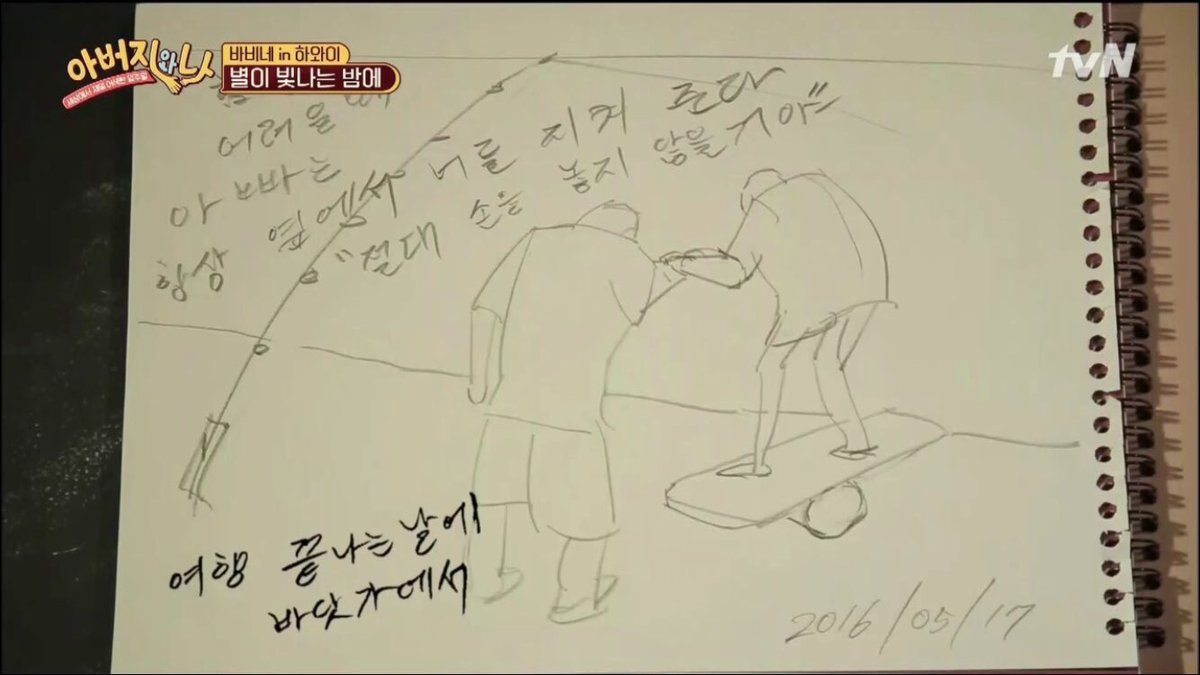 아버지와 나
바비네 in 하와이
별이 빛나는 밤에
tvN
어려울 때
아빠는
항상 옆에서 너를 지켜 준다
“절대 손을 놓지 않을거야”
여행 끝나는날에
바닷가에서
2016/05/17